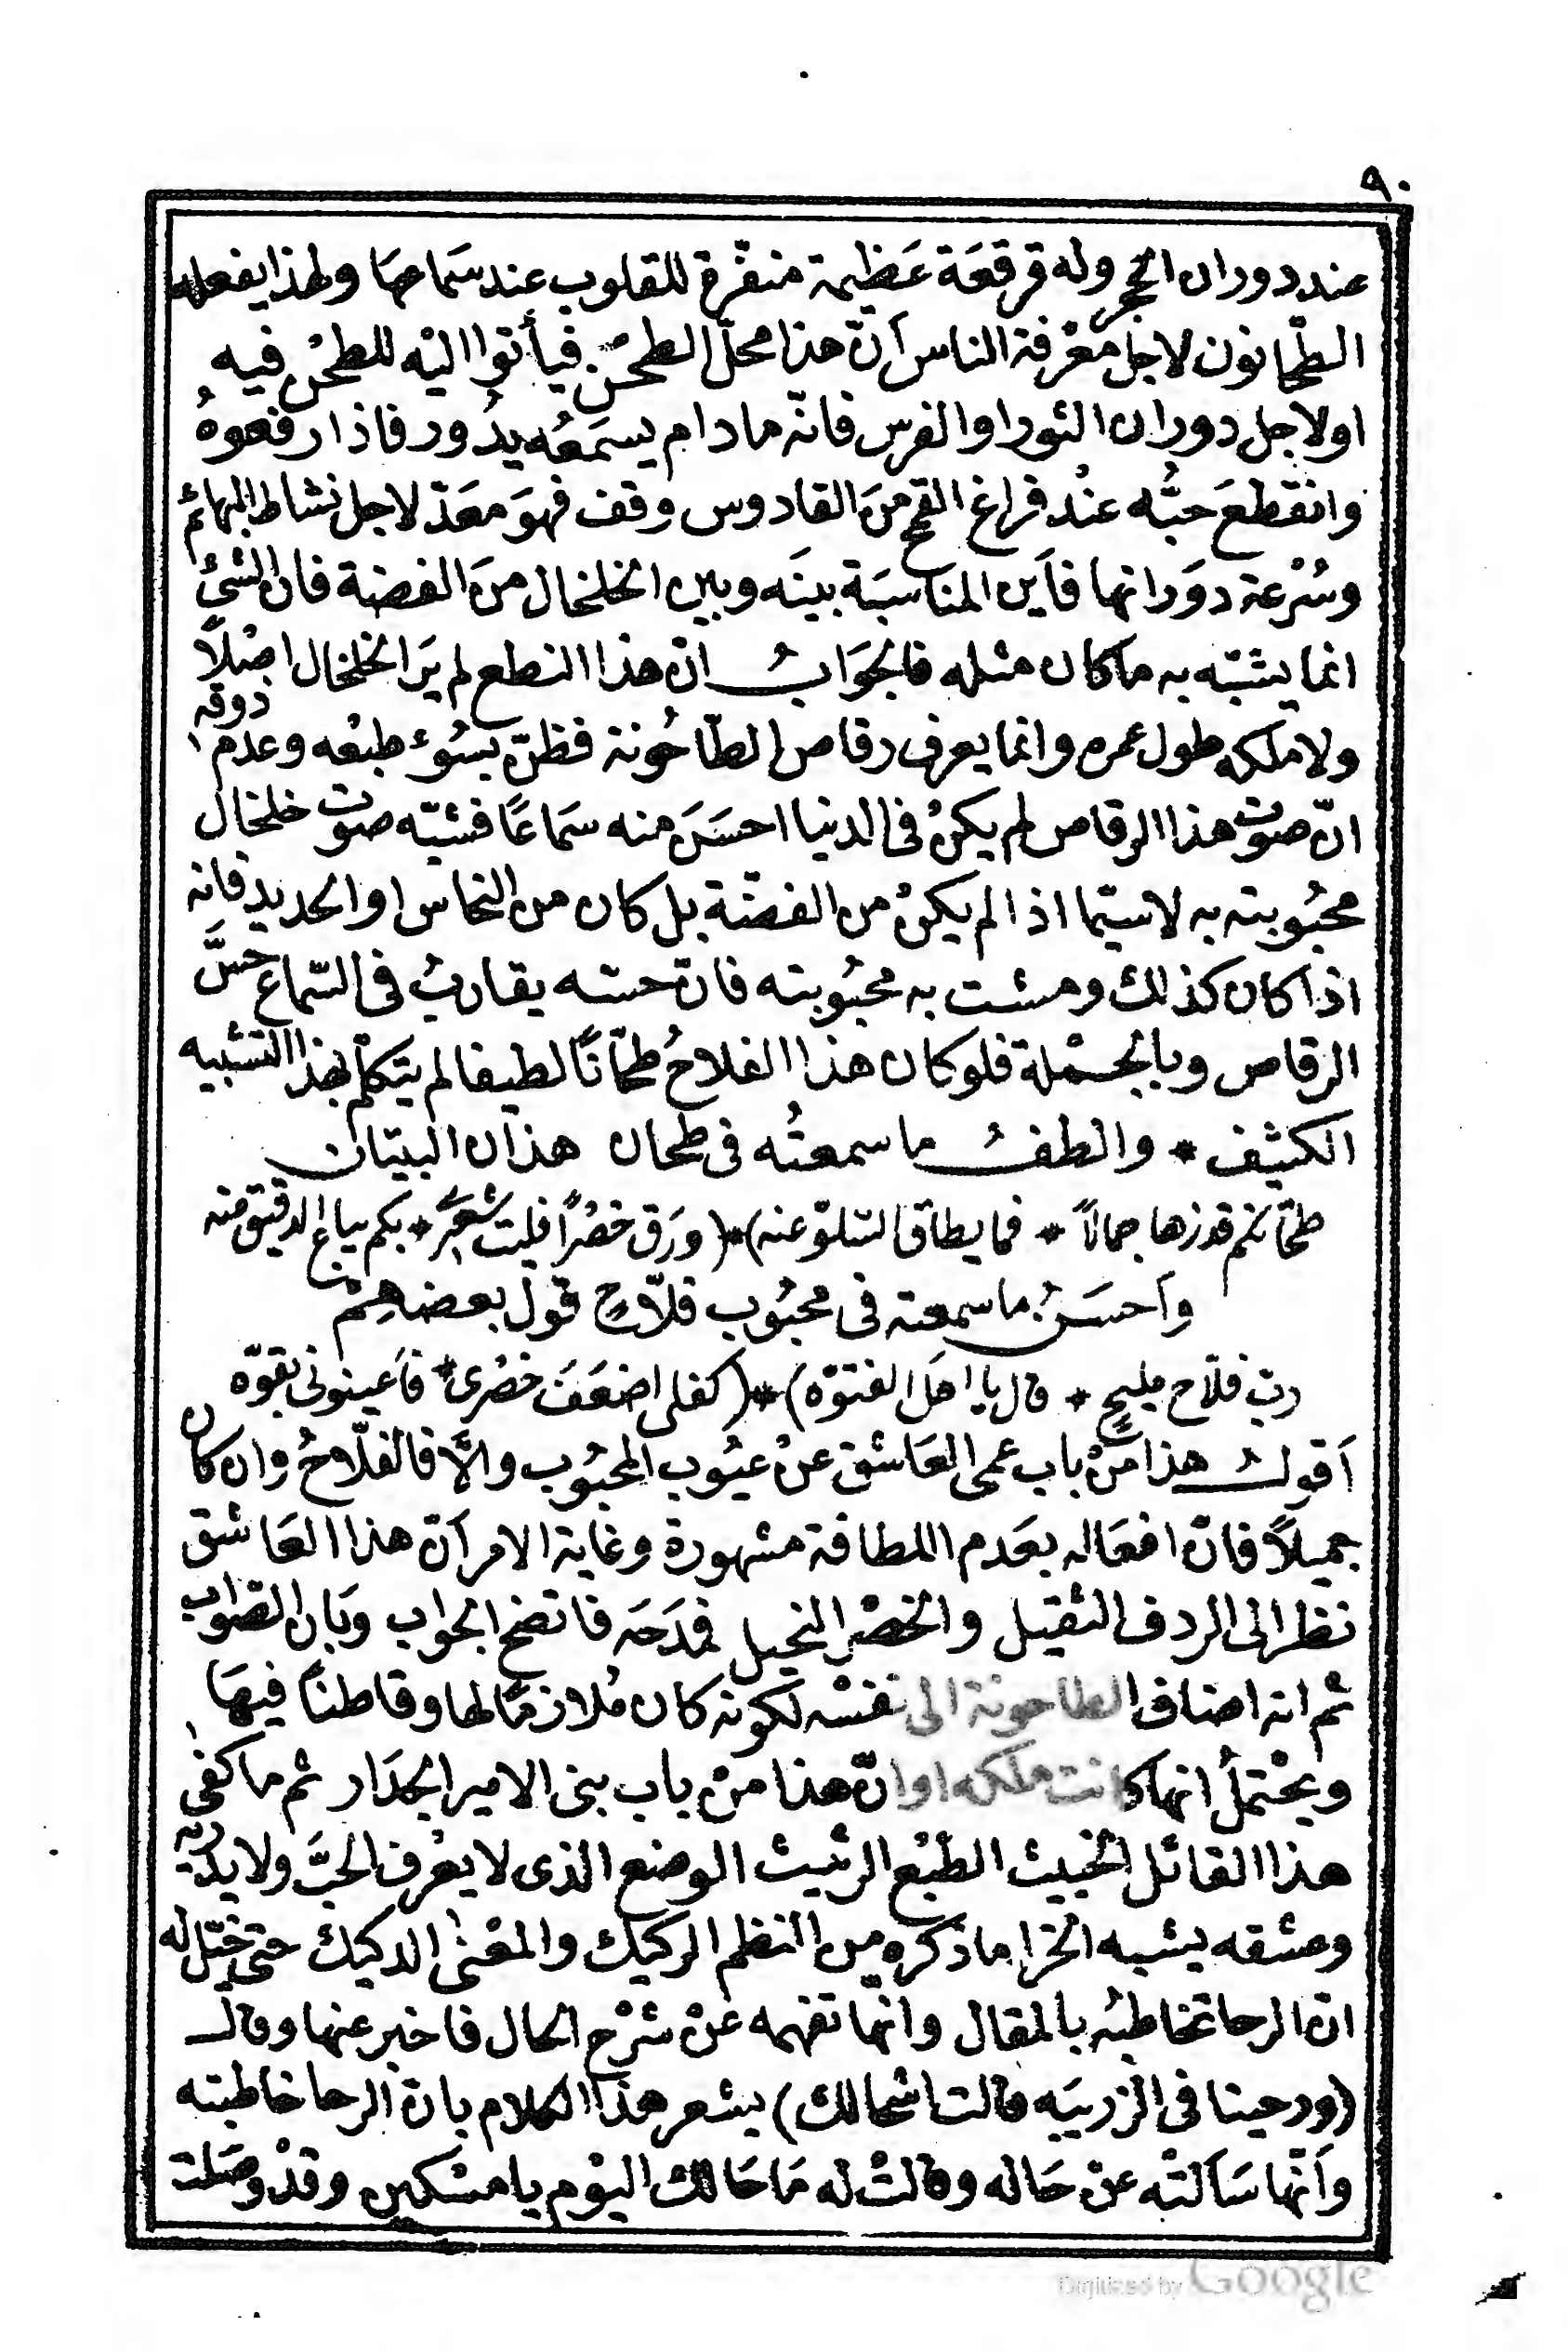 ٩٠
عند دوران الحجر وله قرقعَة عَظيمة منفّرة للقلوب عند سَماعهَا ولهذا يفعله
الطّحانون لاجل مَعْرفة الناس أنّ هذا محلّ الطحن فيأتوا اليْه للطحْن فيه
اولاجل دوران الثور او الفرس فانّه مادام يسمَعُه يدُور فاذا رفعوهُ
وانقَطعَ حبُّه عنْد فراغ القمح منَ القادوس وقف فهوَ معَدّ لاجل نشاط البهائم
وسُرْعة دوَرانها فأين المناسبَة بينَه وبين الخلخال منَ الفضة فان الشئ
انما يشبّه به ما كان مثله فالجوَابُ انّ هذا النطع لم يَر الخلخال اصْلاً
ولا ملكه طول عمره وانما يعرف رقاص الطّاحُونة فظنّ بسُوء طبعْه وعدم ذوقه
انّ صوْت هذا الرقاص لم يكنْ فى الدنيا احسَنَ منه سَماعًا فشبّه صوت خلخال
محبُوبته به لاسيّما اذا لم يكنْ من الفضّة بل كان من النحاس او الحديد فانه
اذا كان كذلك ومشت به محبُوبته فانّ حسّه يقاربُ فى السّماع حسَّ
الرقاص وبالجمْلة فلو كان هذا الفلاحُ طحّانًا لطيفا لم يتكلّم بهذا التشبيه
الكثيف * والطفُ ما سمعتُه فى طحان هذان البيتان
طحّانكم قد زها جمالاً * فما يطاق السّلوّ عنه)*(ورَق خصْرًا فليت شعْرى * بكم يباع الدقيق منه
وأحسَنُ ما سمعته فى محبُوب فلاّحٍ قول بعضهِمْ
ربّ فلاّح مليحٍ * قال يا اهلَ الفتوّه)*(كفلى اضعَفَ خصْرى * فأعينونى بقوّه
أقولُ هذا منْ باب عمى العَاشق عنْ عيُوب المحبُوب والاَّ فالفلاّحُ وان كان
جميلاً فانّ افعَاله بعَدم اللطافة مشهورة وغاية الامر أنّ هذا العَاشق
نظر الى الردف الثقيل والخصْر النحيل فمدَحَه فاتضح الجواب وبَان الصّواب
ثم انه اضاف الطاحونة الى نفسْه لكونه كان مُلازمًا لها وقاطنًا فيهَا
ويحْتملُ انها كانت ملكه او انّ هذا منْ باب بنى الامير الجدَار ثم ما كفى
هذا القائل الخبيث الطّبْع الرثيث الوضع الذى لا يعْرف الحبَّ ولا يدريه
وعشقه يشبه الخرا ما ذكره من النظم الركيك والمعْنى الدكيك حتى خيّل له
انّ الرحا تخاطبُه بالمقال وانّها تفهمه عنْ شرْح الحال فاخبر عنها وقال
(ورحينا فى الزريبَه قالت اشحالك) يشعر هذا الكلام بانّ الرحا خاطبته
وأنّها سَألتْه عنْ حَاله وقالتْ له مَا حَالك اليوْم يا مسْكين وقدْ وصَلت
Digitized by Google